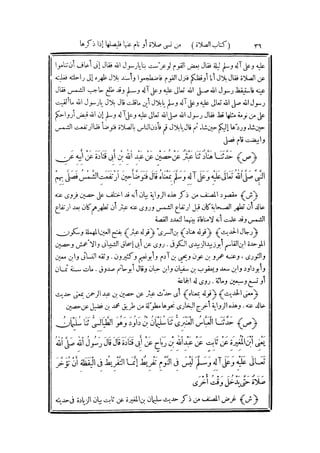 ٣٦ (كتاب الصلاة) من نسى صلاة أو نام عنها فليصلها إذا ذكرها
عليه وعلى آله وسلم ليلة فقال بعض القوم لو عرّست بنا يا رسول الله فقال إنى أخاف أن تناموا
عن الصلاة فقال بلال أنا أوقظكم فنزل القوم فاضطجعوا وأسند بلال ظهره إلى راحلته فغلبته
عينه فاستيقظ رسول الله صلى الله تعالى عليه وعلى آله وسلم وقد طلع حاجب الشمس فقال
رسول الله صلى الله تعالى عليه وعلى آله وسلم يا بلال أين ما قلت قال بلال يا رسول الله ما ألقيت
على من نومة مثلها قط فقال رسول الله صلى الله تعالى عليه وعلى آله وسلم إن الله قبض أرواحكم
حين شاء وردها إليكم حين شاء ثم قال يا بلال قم فأذن الناس بالصلاة فتوضأ فلما ارتفعت الشمس
وابيضت قام فصلى
(ص) حَدَّثَنَا هَنَّادٌ نَا عَبْثَرٌ عَنْ حُصَيْنٍ عَنْ عَبْدِ اللهِ بْنِ أَبِى قَتَادَةَ عَنْ أَبِيهِ عَنِ
النَّبِىِّ صَلَّى اللهُ تَعَالَى عَلَيْهِ وَعَلَى آلِهِ وَسَلَّمَ بِمَعْنَاهُ قَالَ فَتَوَضَّأَ حِينَ ارْتَفَعَتِ الشَّمْسُ فَصَلَّى بِهِمْ
(ش) مقصود المصنف من ذكر هذه الرواية بيان أنه قد اختلف على حصين فروى عنه
خالد أن تطهر الصحابة كان قبل ارتفاع الشمس وروى عنه عبثر أن تطهرهم كان بعد ارتفاع
الشمس وقد علمت أنه لا منافاة بينهما لتعدد القصة
(رجال الحديث) (قوله هناد) بن السرى (قوله عبثر) بفتح العين المهملة وسكون
الموحدة ابن القاسم أبو زبيد الزبيدى الكوفى. روى عن أبى إسحاق الشيبانى والأعمش وحصين
والثورى. وعنه عمرو بن عون ويحيى بن آدم وأبو نعيم وكثيرون. وثقه النسائى وابن معين
وأبو داود وابن سعد ويعقوب بن سفيان وابن حبان وقال أبو حاتم صدوق. مات سنة ثمان
أو تسع وسبعين ومائة. روى له الجماعة
(معنى الحديث) (قوله بمعناه) أى حدّث عبثر عن حصين بن عبد الرحمن بمعنى حديث
خالد عنه. وهذه الرواية أخرج البخارى نحوها مطولة من طريق محمد بن فضيل عن حصين
(ص) حَدَّثَنَا الْعَبَّاسُ الْعَنْبَرِىُّ نَا سُلَيْمَانُ بْنُ دَاوُدَ وَهُوَ الطَّيَالِسِىُّ نَا سُلَيْمَانُ
يَعْنِى ابْنَ الْمُغِيرَةِ عَنْ ثَابِتٍ عَنْ عَبْدِ اللهِ بْنِ رَبَاحٍ عَنْ أَبِى قَتَادَةَ قَالَ قَالَ رَسُولُ اللهِ صَلَّى اللهُ
تَعَالَى عَلَيْهِ وَعَلَى آلِهِ وَسَلَّمَ لَيْسَ فِى النَّوْمِ تَفْرِيطٌ إِنَّمَا التَّفْرِيطُ فِى الْيَقَظَةِ أَنْ تُؤَخَّرَ
صَلَاةٌ حَتَّى يَدْخُلَ وَقْتُ أُخْرَى
(ش) غرض المصنف من ذكر حديث سليمان بن المغيرة عن ثابت بيان الزيادة فى حديثه